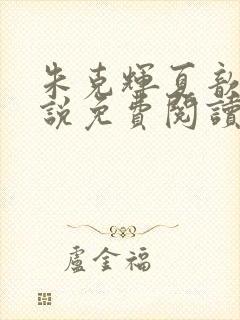 朱克輝夏歆
說免費閱讀
盧金福